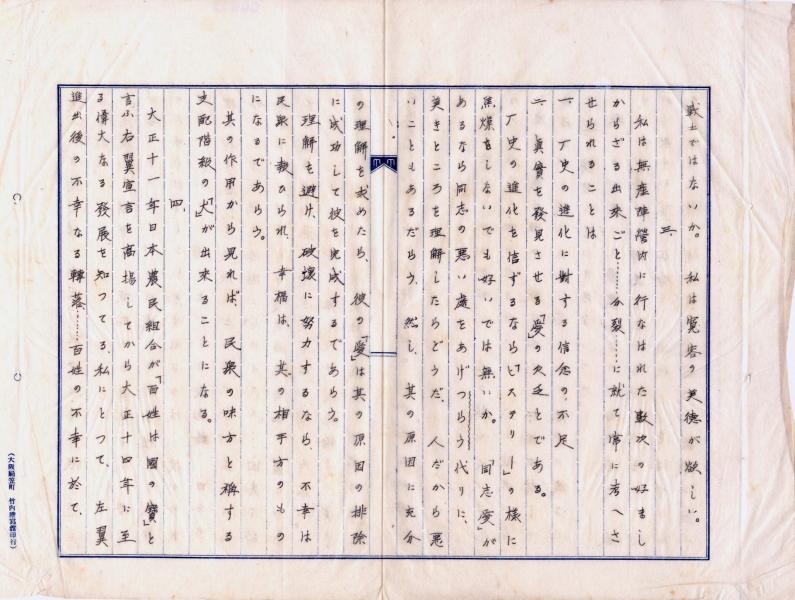 戦士ではないか。私は寛容の美徳が欲しい。
三、
私は無産陣営内に行なはれた数次の好まし
からざる出来ごと……分裂……に就て常に考へさ
せられることは
一、厂史の進化に対する信念の不足
二、眞實を發見させる「愛」の欠乏とである。
厂史の進化を信ずるなら「ヒステリー」の様に
焦燥をしないでも好いでは無いか。「同志愛」が
あるなら同志の悪い處をあげつらう代りに、
美きところを理解したらどうだ、人だから悪
いこともあるだらう、然し、其の原因に充分
の理解を求めたら、彼の「愛」は其の原因の排除
に成功して彼を完成するであらう。
理解を避け、破壊に努力するなら、不幸は
民衆に裁ひられ、幸福は、其の相手方のもの
になるであらう。
其の作用から見れば、民衆の味方と稱する
支配階級の「犬」が出来ることになる。
四、
大正十一年日本農民組合が「百姓は國の寶」と
言ふ右翼宣言を高揚してから大正十四年に至
る偉大なる發展を知つてる、私にとつて、左翼
進出後の不幸なる轉落……百姓の不幸に於て、
(大阪 竹内 印行)